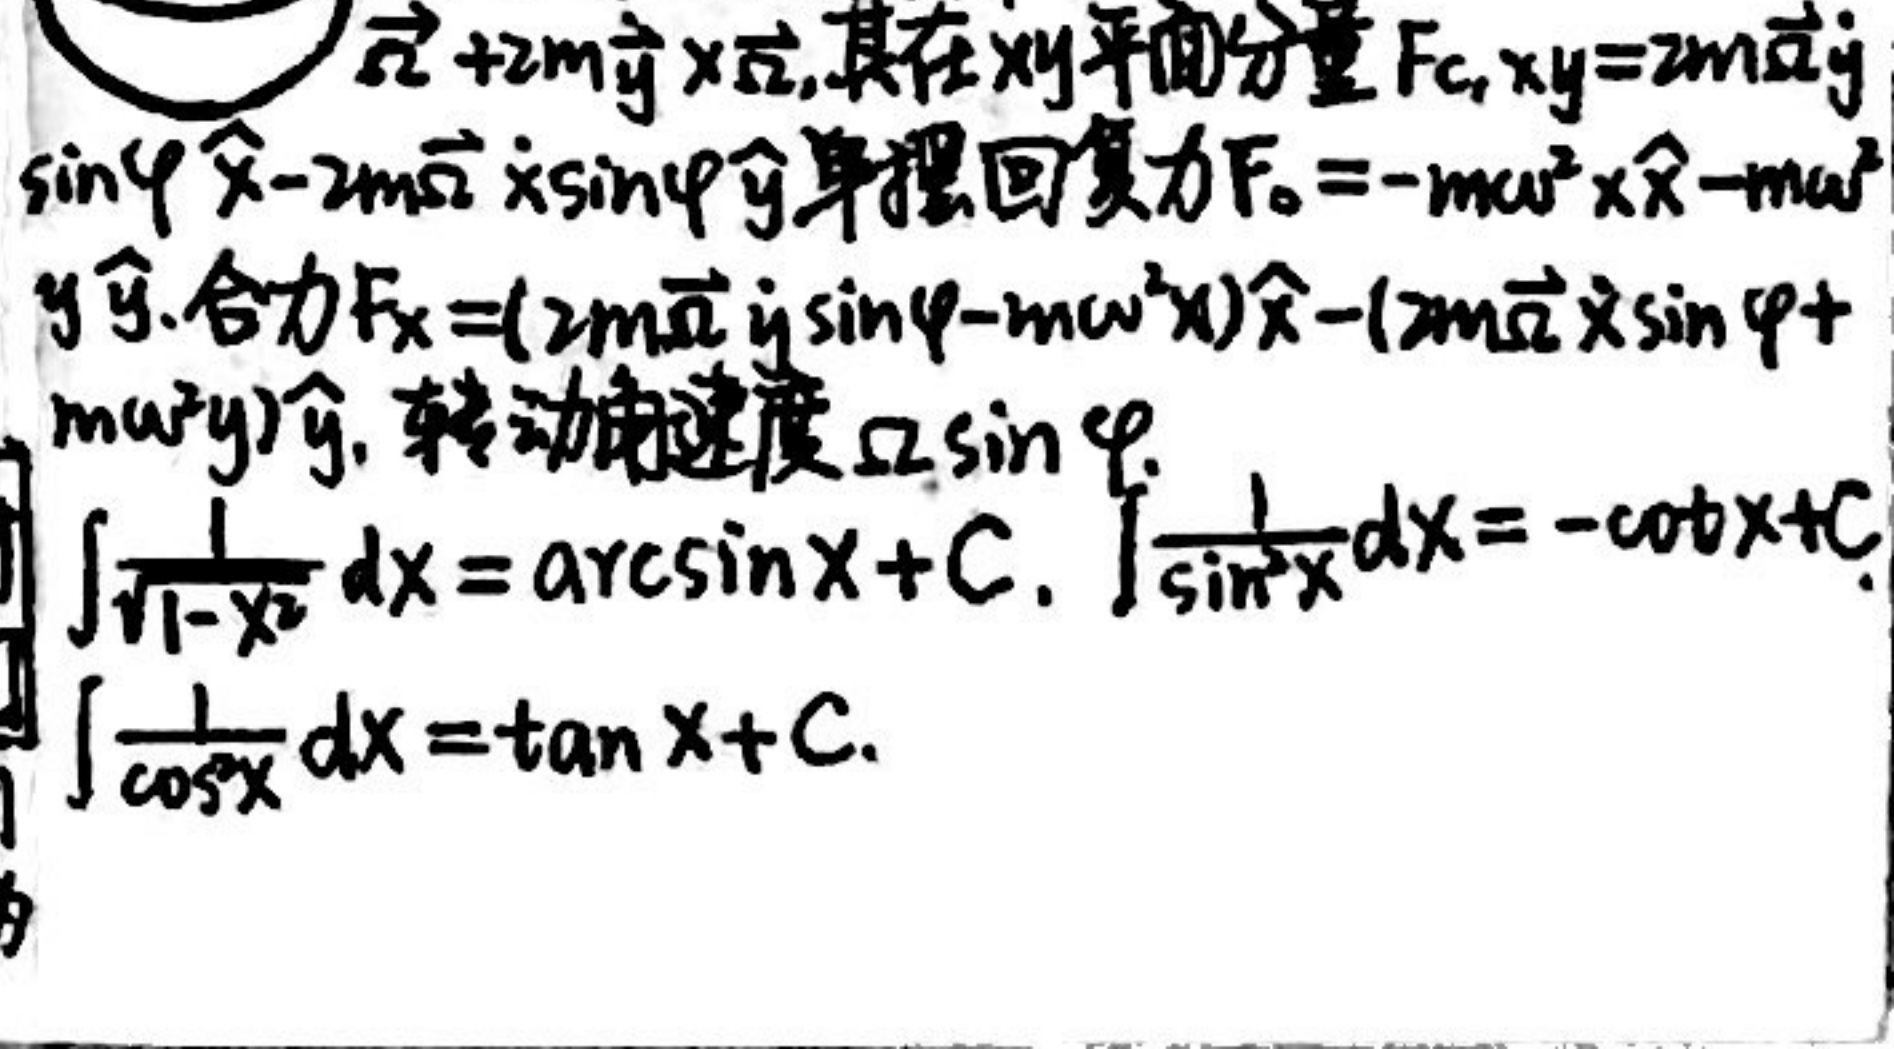 Ω⃗ +2mẏ⃗ ×Ω⃗,其在xy平面分量 Fc,xy=2mΩ⃗ẏ
sinφ x̂-2mΩ⃗ ẋsinφ ŷ 单摆回复力F₀=-mω²xx̂-mω²
yŷ.合力Fx=(2mΩ⃗ ẏsinφ-mω²x)x̂-(2mΩ⃗ẋsinφ+
mω²y)ŷ.转动角速度Ωsinφ.
∫1/√(1-x²) dx=arcsinx+C. ∫1/sin²x dx=-cotx+C.
∫1/cos²x dx=tanx+C.